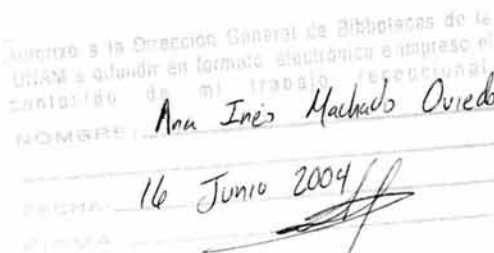 Autorizo a la Dirección General de Bibliotecas de la
UNAM a difundir en formato electrónico e impreso el
contenido de mi trabajo recepcional.
NOMBRE: Ana Inés Machado Oviedo
FECHA: 16 Junio 2004
FIRMA